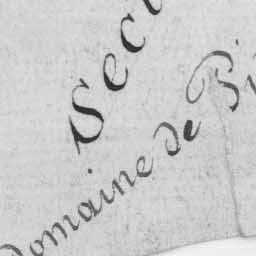 Sec
Domaine de Pi